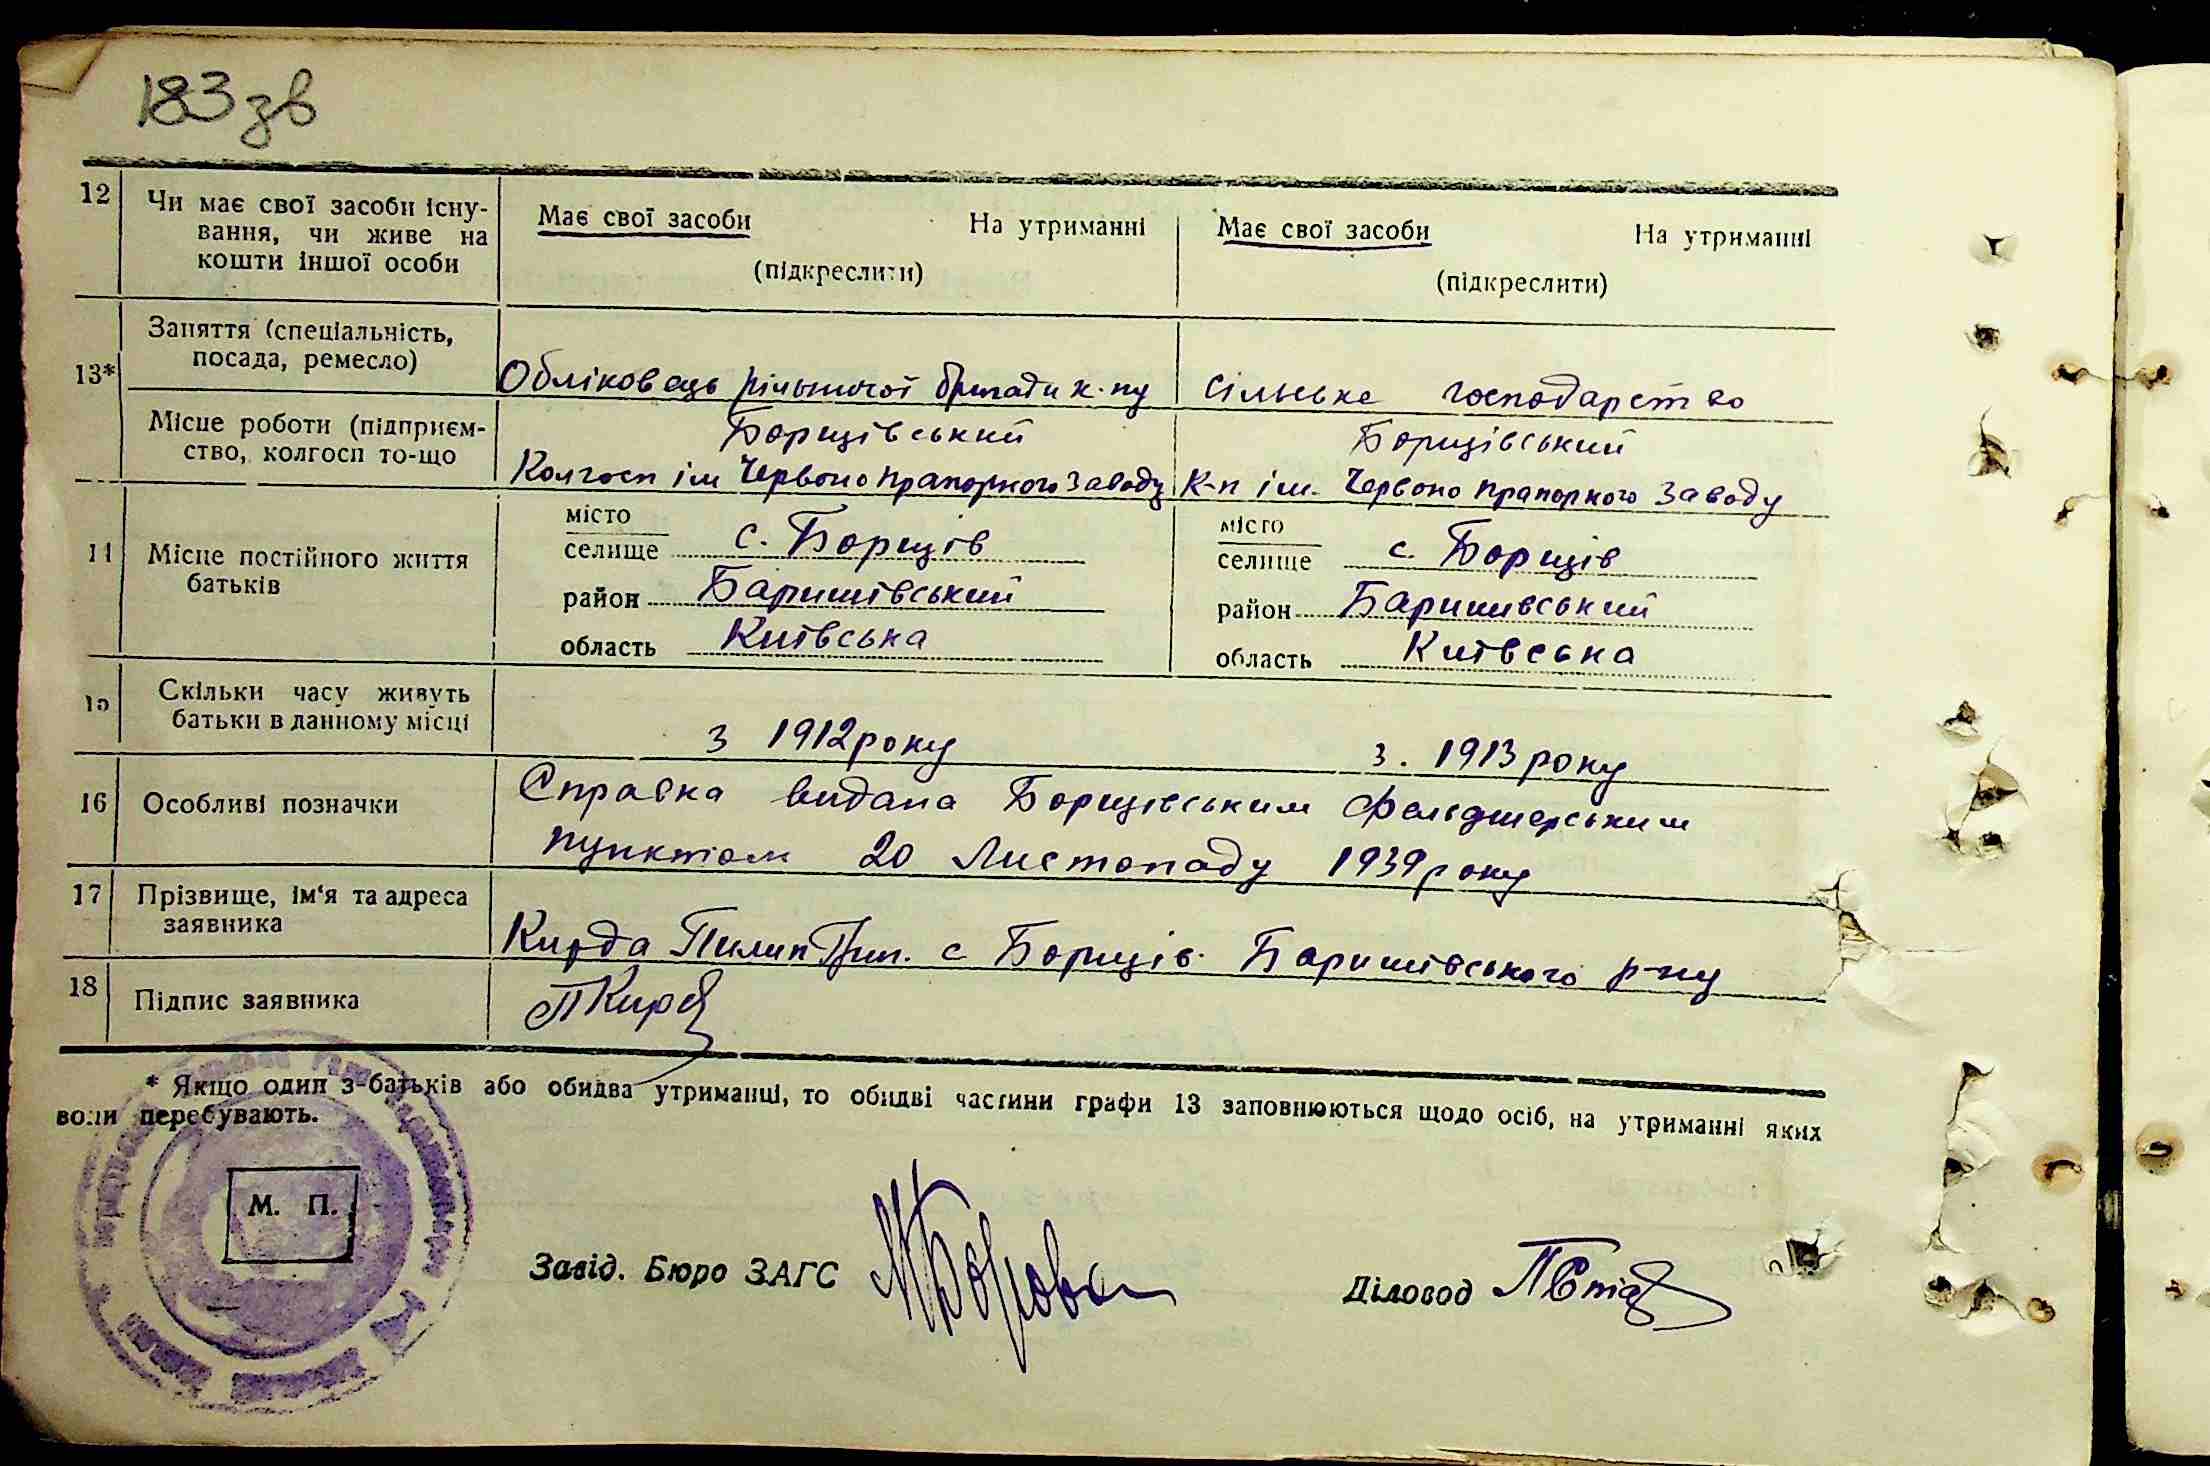 183 зв
12 Чи має свої засоби існу-
вання, чи живе на
кошти іншої особи
Має свої засоби На утриманні
(підкреслити)
Має свої засоби На утриманні
(підкреслити)
13* Заняття (спеціальність,
посада, ремесло)
Обліковець рільничої бригади к-пу
сільське господарство
Місце роботи (підприєм-
ство, колгосп то-що
Борщівський
Колгосп ім Червоно прапорного заводу
Борщівський
К-п ім. Червоно прапорного заводу
14 Місце постійного життя
батьків
місто
селище с. Борщів
район Баришівський
область Київська
місто
селище с. Борщів
район Баришівський
область Київська
15 Скільки часу живуть
батьки в данному місці
з 1912 року
з. 1913 року
16 Особливі позначки
Справка видана Борщівським фельдшерським
пунктом 20 Листопаду 1939 року
17 Прізвище, ім‘я та адреса
заявника
Кирда Пилип с Борщів Баришівського р-ну
18 Підпис заявника
ПКирда
* Якщо один з-батьків або обидва утриманці, то обидві частини графи 13 заповнюються щодо осіб, на утриманні яких
вони перебувають.
М. П.
Завід. Бюро ЗАГС
Діловод